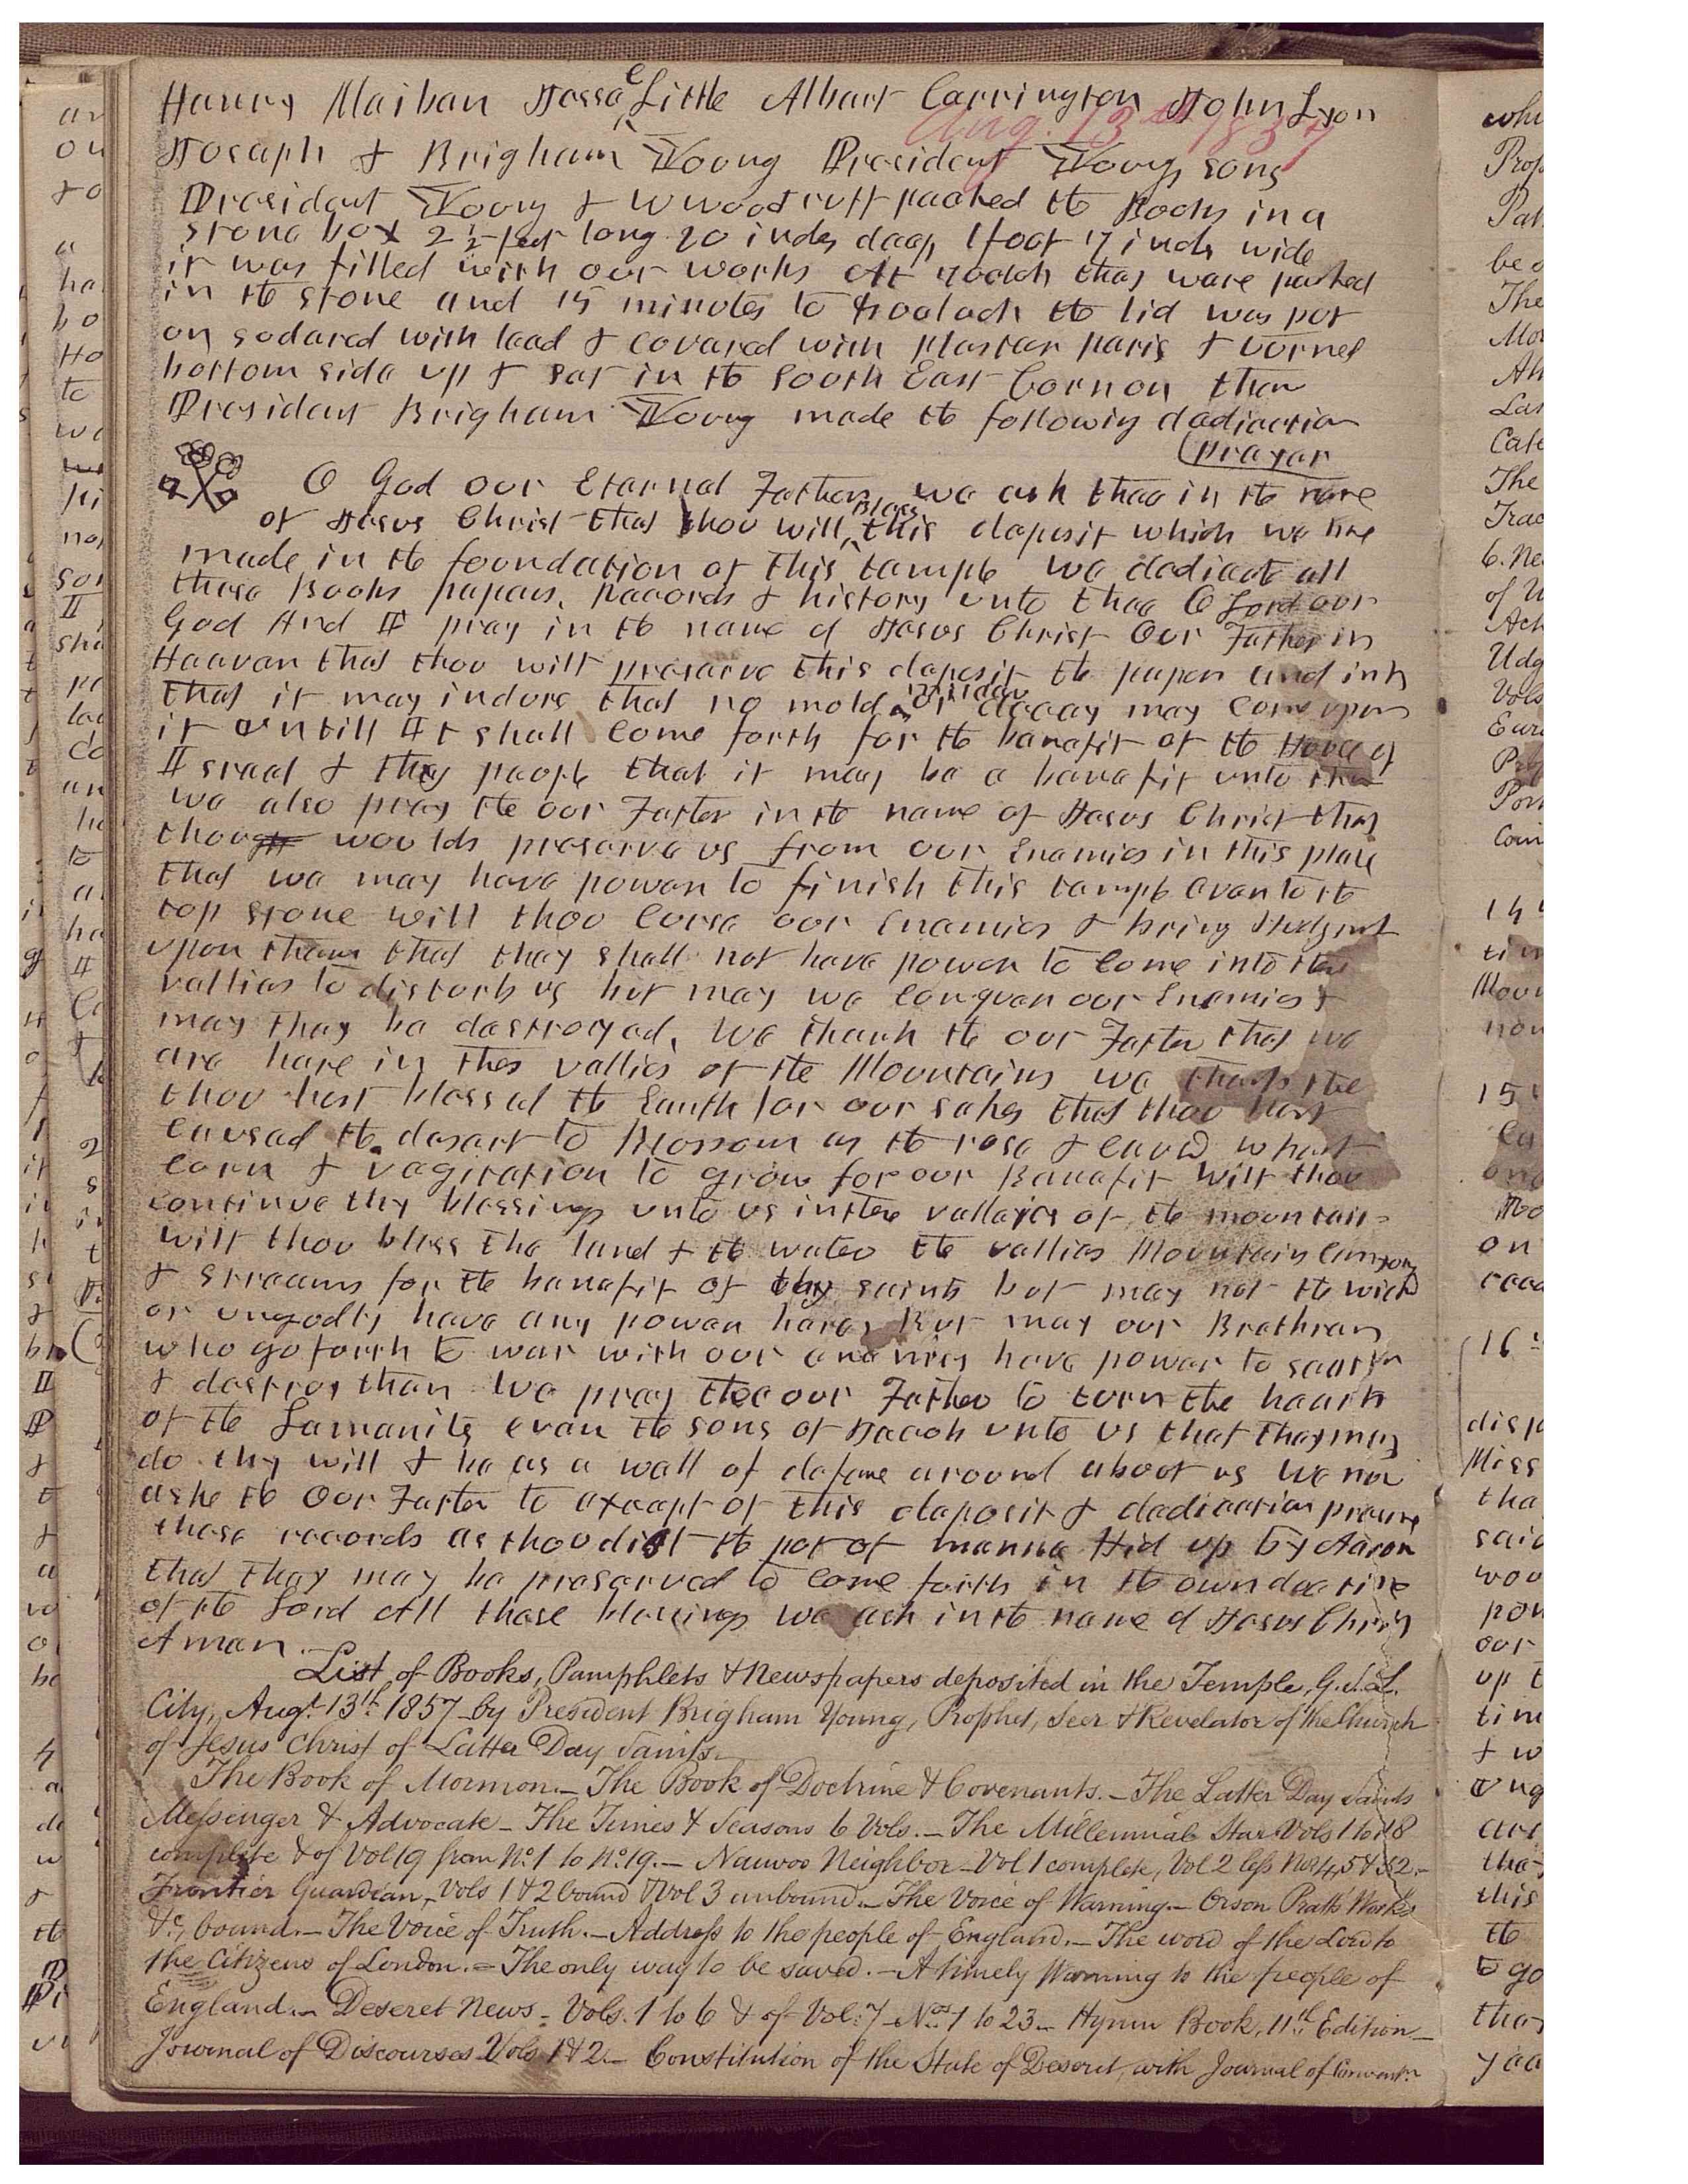 Henery Maiban Jesse Little Albert Carrington John Lyon
Aug. 13th 1857
Joseph & Brigham Young President Youngs sons
President Young & W woodruff packed the Books in a
stone box 2½ feet long 20 inches deep, 1 foot 17 inch wide
it was filled with our works At 7 oclok they ware packed
in the stone and 15 minutes to 8 oclock the lid was put
on sodared with lead & covared with plaster paris & turned
bottom side up & set in the South East Cornor then
President Brigham Young made the following dediaction
prayer
O God our Eternal Father, we ask thee in the name
of Jesus Christ that thou will Bless this deposit which we have
made in the foundation of this temple we dedicate all
these Books papers, Records & history unto thee O Lord our
God And I pray in the name of Jesus Christ Our Father in
Heaven that thou wilt preserve this deposit the paper and ink
that it may indure that no mold mildew or decay may come upon
it untill It shall come forth for the benefit of the House of
Israel & thy people that it may be a benefit unto them
we also pray the our Father in the name of Jesus Christ that
thou woulds preserve us from our Enemies in this place
that we may have power to finish this temple even to the
top stone will thou Curse our Enemies & bring Judgmet
upon them that they shall not have power to come into the
vallies to disturb us but may we conquer our Enemies &
may they be destroyed, We thank the our Father that we
are here in thes vallies of the Mountains we thank the
thou hast blessed the Earth for our sakes that thou hast
caused the desart to Blossom as the rose & caused wheat
corn & vegitation to grow for our Benefit Wilt thou
continue thy blessings unto us in these valleys of the mountains
wilt thou bless the land & the water the vallies Mountains canyons
& streams for the benefit of thy saints but may not the wicked
or ungodly have any power here, But may our Brethren
who go forth to war with our enemies have power to scatter
& destroy them We pray thee our Father to turn the hearts
of the Lamanits even the sons of Jacob unto us that they may
do thy will & be as a wall of defence around about us We now
aske the Our Father to except of this deposit & dediaction preserve
these records as thou didst the pot of manna Hid up by Aaron
that they may be preserved to come forth in the own due time
of the Lord All these blessings we ask in the name of Jesus Christ
Amen.
List of Books, Pamphlets & Newspapers deposited in the Temple, G.S.L.
City, Augt. 13th 1857 by President Brigham Young, Prophet, Seer & Revelator of the Church
of Jesus Christ of Latter Day Saints.
The Book of Mormon.— The Book of Doctrine & Covenants.— The Latter Day Saints
Messenger & Advocate — The Times & Seasons 6 Vols.— The Millennial Star Vols 1 to 18
complete & of Vol 19 from No. 1 to No. 19.— Nauvoo Neighbor — Vol 1 complete, Vol 2 less Nos 4, 5 & 52.—
Frontier Guardian, Vols 1 & 2 bound & Vol 3 unbound.— The Voice of Warning.— Orson Pratts' Works
&c, bound.— The Voice of Truth.— Address to the people of England.— The word of the Lord to
the Citizens of London.— The only way to be saved.— A timely Warning to the people of
England.— Deseret News — Vols. 1 to 6 & of Vol. 7 — Nos 1 to 23 — Hymn Book, 11th Edition —
Journal of Discourses Vols 1 & 2.— Constitution of the State of Deseret, with Journal of Convent.n